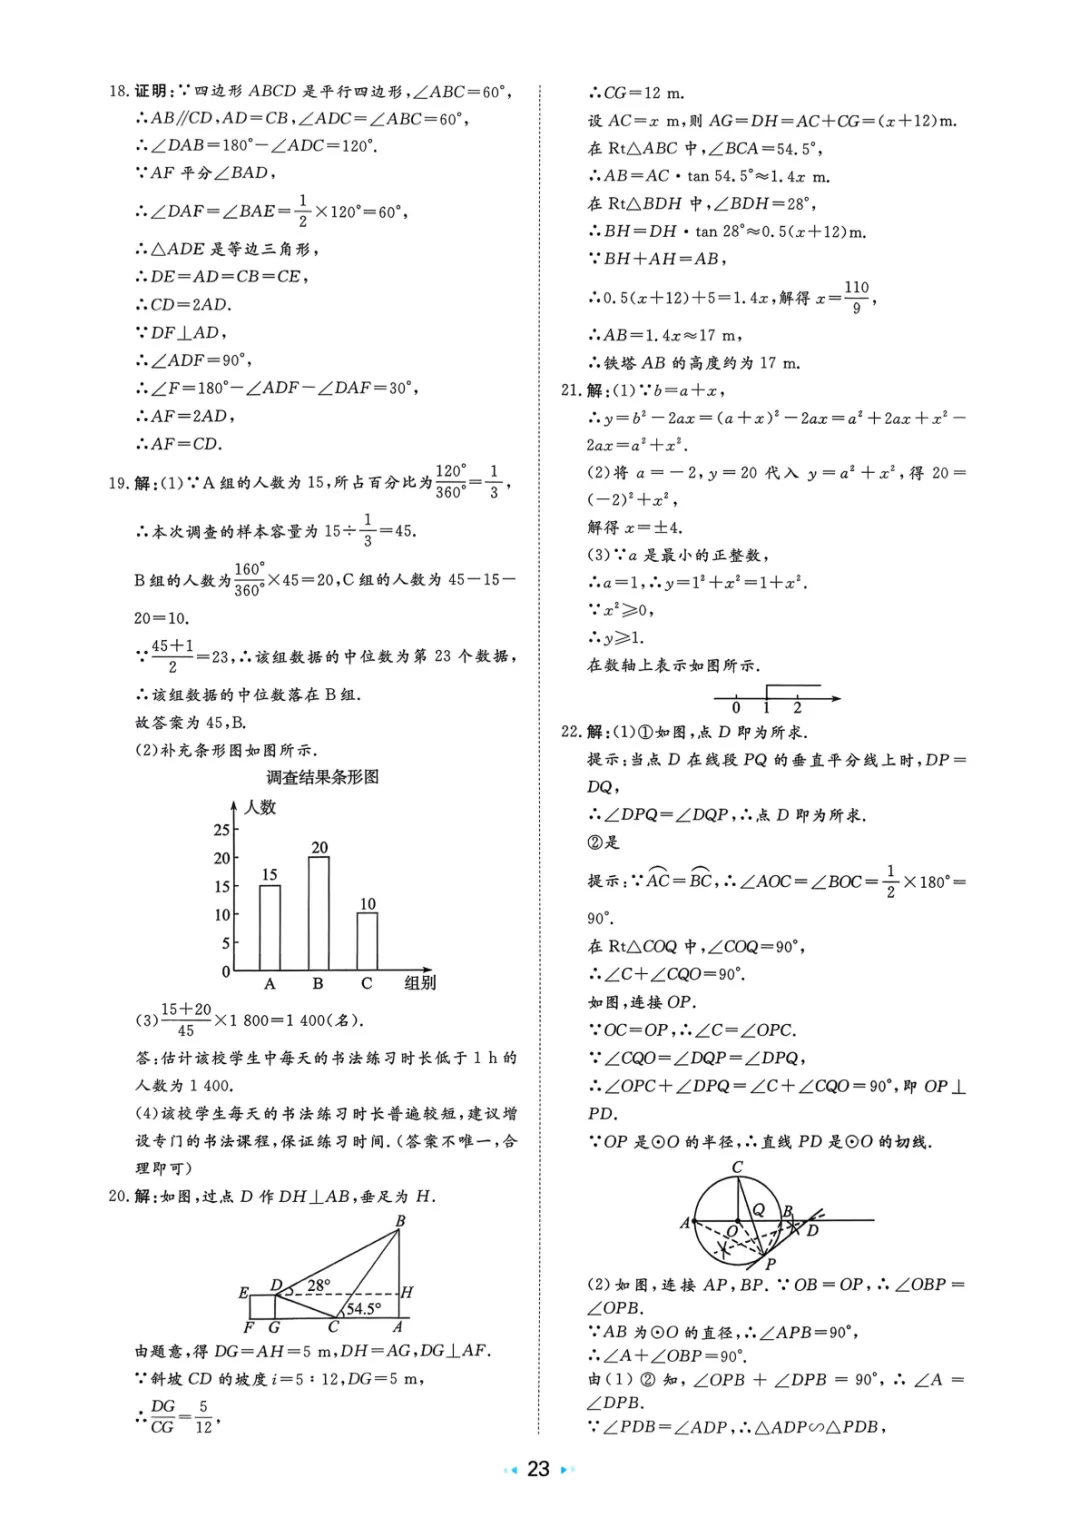 18.证明:∵四边形ABCD是平行四边形,∠ABC=60°,
∴AB∥CD,AD=CB,∠ADC=∠ABC=60°,
∴∠DAB=180°-∠ADC=120°.
∵AF平分∠BAD,
∴∠DAF=∠BAE=1/2×120°=60°,
∴△ADE是等边三角形,
∴DE=AD=CB=CE,
∴CD=2AD.
∵DF⊥AD,
∴∠ADF=90°,
∴∠F=180°-∠ADF-∠DAF=30°,
∴AF=2AD,
∴AF=CD.
19.解:(1)∵A组的人数为15,所占百分比为120°/360°=1/3,
∴本次调查的样本容量为15÷1/3=45.
B组的人数为160°/360°×45=20,C组的人数为45-15-
20=10.
∵(45+1)/2=23,∴该组数据的中位数为第23个数据,
∴该组数据的中位数落在B组.
故答案为45,B.
(2)补充条形图如图所示.
调查结果条形图
人数
25
20
15
10
5
0
15
20
10
A B C 组别
(3)(15+20)/45×1 800=1 400(名).
答:估计该校学生中每天的书法练习时长低于1 h的
人数为1 400.
(4)该校学生每天的书法练习时长普遍较短,建议增
设专门的书法课程,保证练习时间.(答案不唯一,合
理即可)
20.解:如图,过点D作DH⊥AB,垂足为H.
B
E D 28° H
54.5°
F G C A
由题意,得DG=AH=5 m,DH=AG,DG⊥AF.
∵斜坡CD的坡度i=5:12,DG=5 m,
∴DG/CG=5/12,
∴CG=12 m.
设AC=x m,则AG=DH=AC+CG=(x+12)m.
在Rt△ABC中,∠BCA=54.5°,
∴AB=AC·tan 54.5°≈1.4x m.
在Rt△BDH中,∠BDH=28°,
∴BH=DH·tan 28°≈0.5(x+12)m.
∵BH+AH=AB,
∴0.5(x+12)+5=1.4x,解得x=110/9,
∴AB=1.4x≈17 m,
∴铁塔AB的高度约为17 m.
21.解:(1)∵b=a+x,
∴y=b²-2ax=(a+x)²-2ax=a²+2ax+x²-
2ax=a²+x².
(2)将a=-2,y=20代入y=a²+x²,得20=
(-2)²+x²,
解得x=±4.
(3)∵a是最小的正整数,
∴a=1,∴y=1²+x²=1+x².
∵x²≥0,
∴y≥1.
在数轴上表示如图所示.
0 1 2
22.解:(1)①如图,点D即为所求.
提示:当点D在线段PQ的垂直平分线上时,DP=
DQ,
∴∠DPQ=∠DQP,∴点D即为所求.
②是
提示:∵A͡C=B͡C,∴∠AOC=∠BOC=1/2×180°=
90°.
在Rt△COQ中,∠COQ=90°,
∴∠C+∠CQO=90°.
如图,连接OP.
∵OC=OP,∴∠C=∠OPC.
∵∠CQO=∠DQP=∠DPQ,
∴∠OPC+∠DPQ=∠C+∠CQO=90°,即OP⊥
PD.
∵OP是⊙O的半径,∴直线PD是⊙O的切线.
C
A O Q B D
P
(2)如图,连接AP,BP.∵OB=OP,∴∠OBP=
∠OPB.
∵AB为⊙O的直径,∴∠APB=90°,
∴∠A+∠OBP=90°.
由(1)②知,∠OPB+∠DPB=90°,∴∠A=
∠DPB.
∵∠PDB=∠ADP,∴△ADP∽△PDB,
23